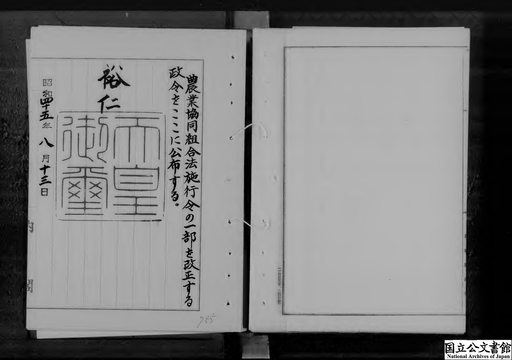 農業協同組合法施行令の一部を改正する
政令をここに公布する。
裕仁
天皇
御璽
昭和四十五年八月十三日
内閣
768
国立公文書館
National Archives of Japan